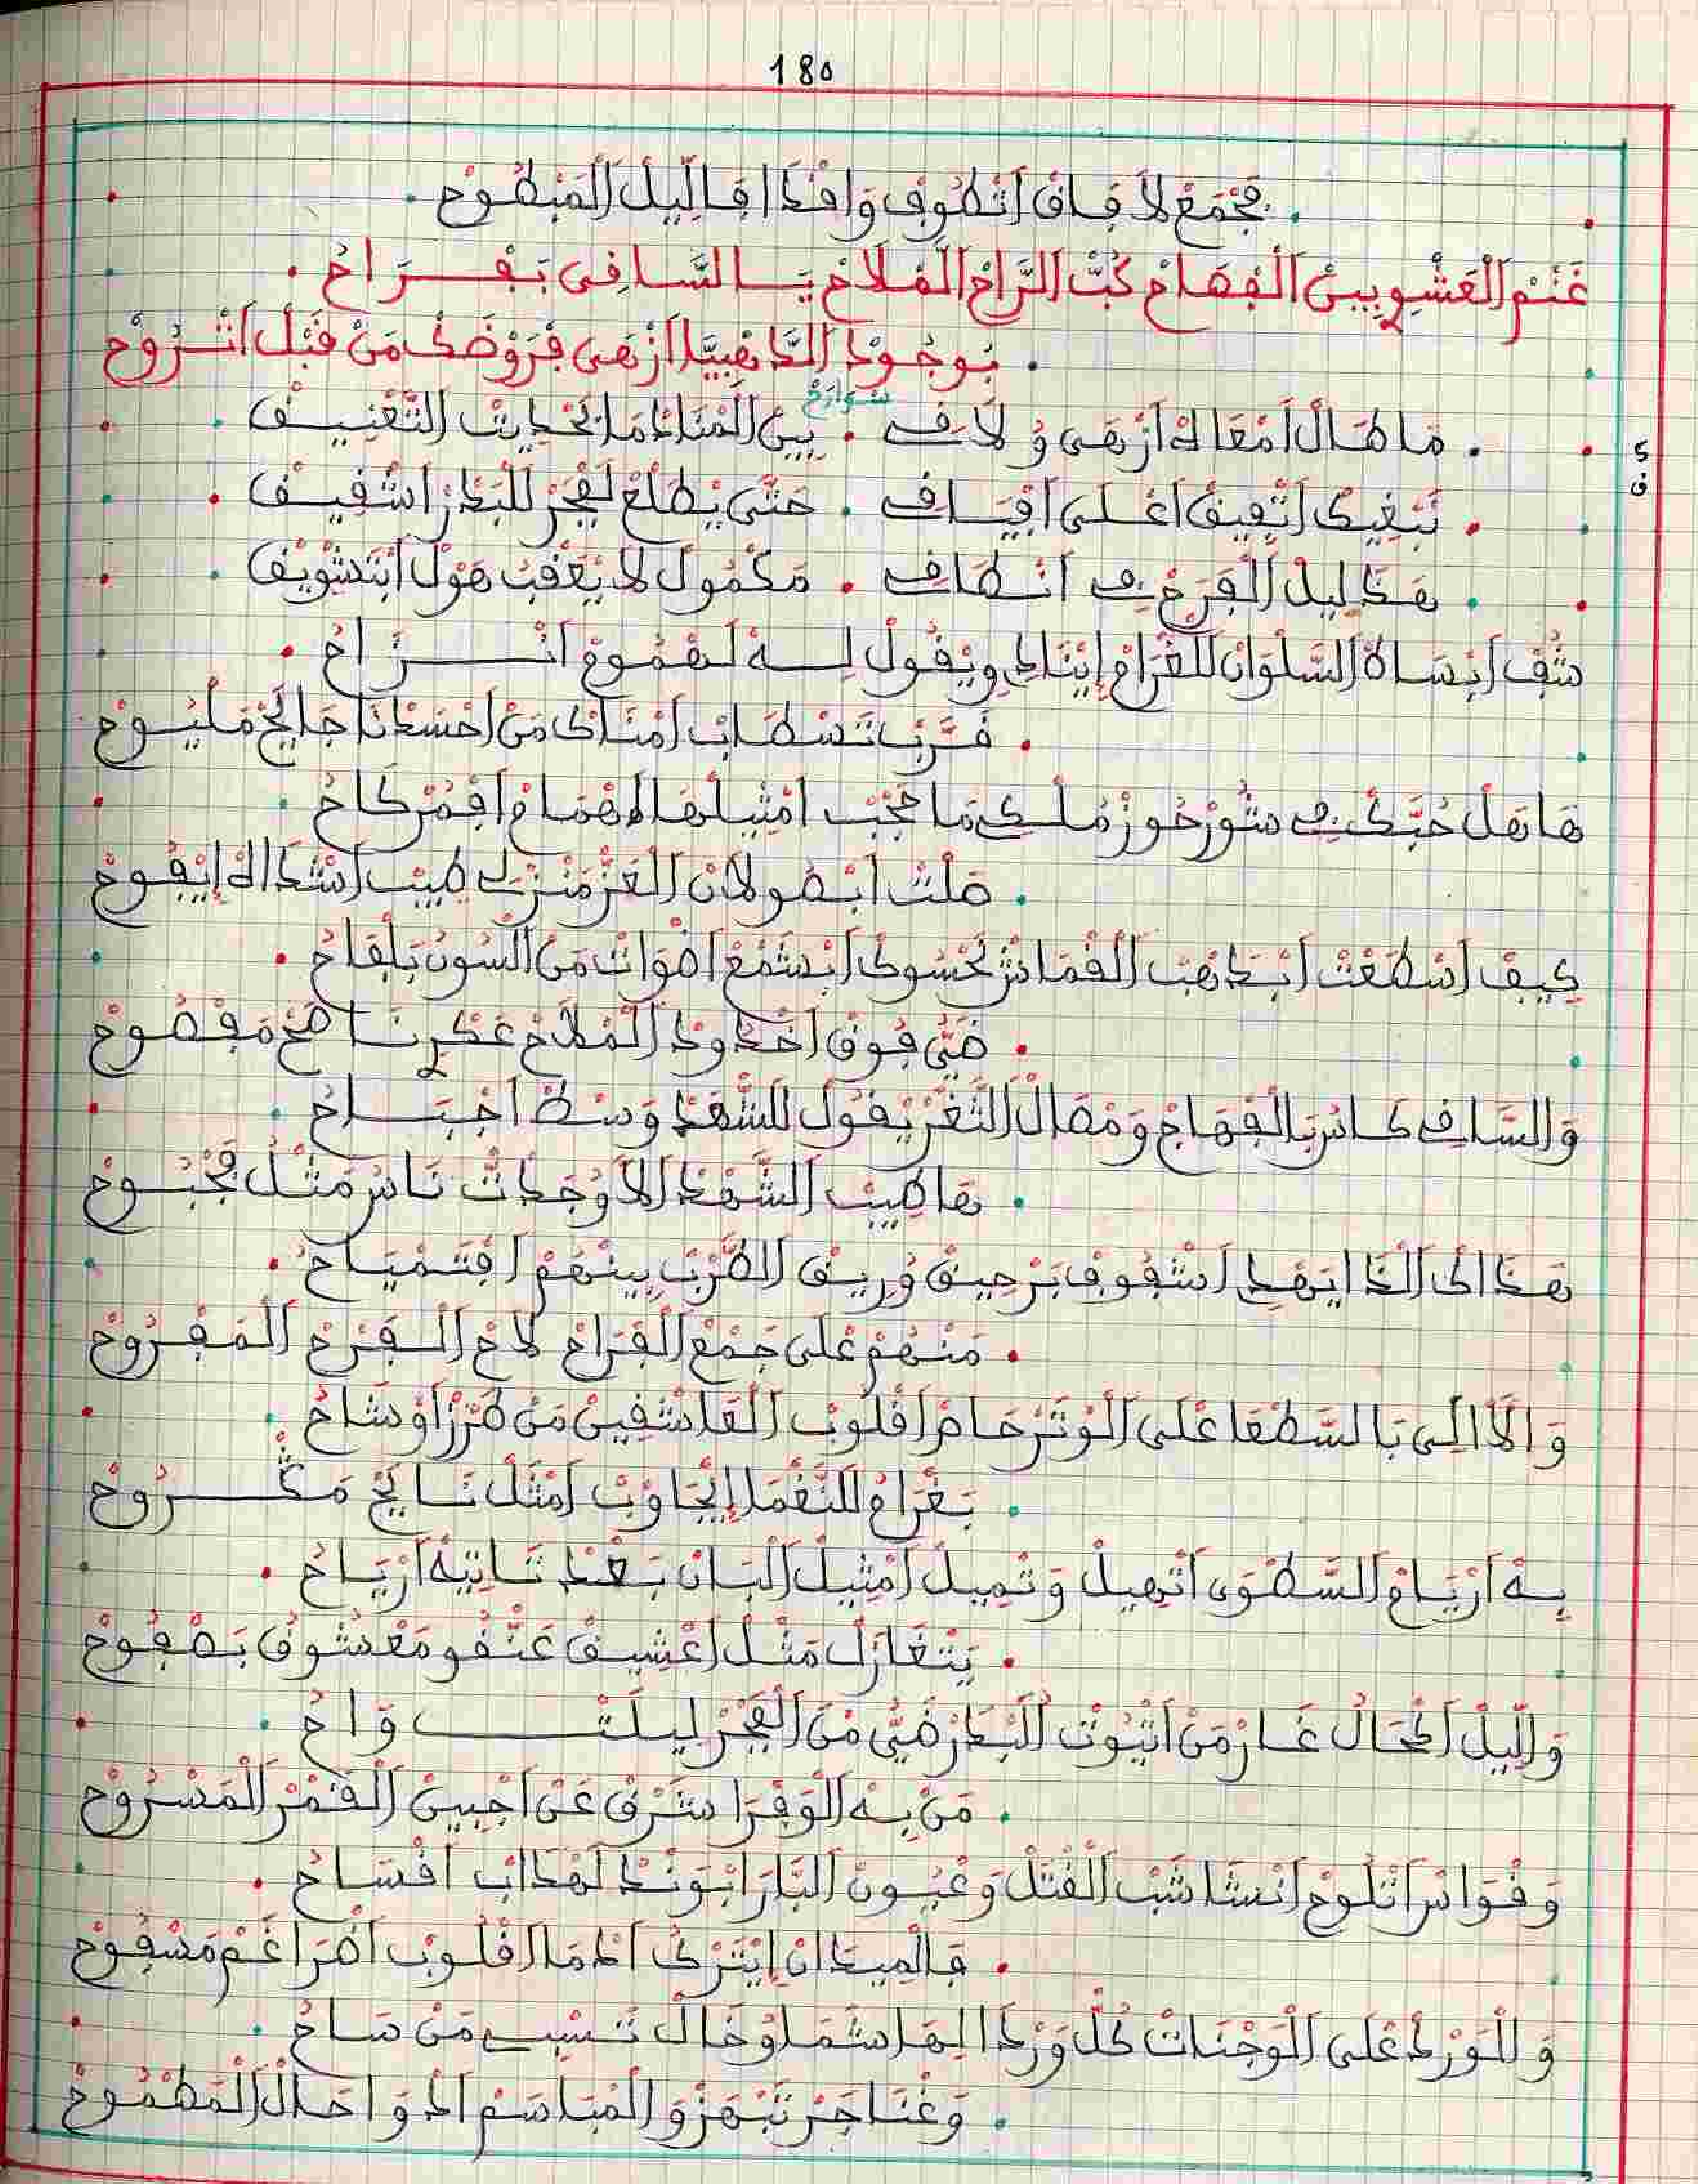 180
فَجْمَعْ لَا فَاقْ اَتْطُوفْ وَاهْدَا فَاللِّيلْ الْمَبْطُوحْ
غَنَمْ الْعَشْوِيينْ الْفْصَاحْ كُبّْ الرَّاحْ الْمْلَاحْ يَا السَّاقِي بَفْرَاحُ
بُوجُودْ الدَّاهْبِيَّا اَزْهَى فْرَوْضَكْ مَنْ قَبْلْ اتْرُوحْ
مَا طَالْ اَمْعَاكْ اَزْهَى وُ لَافِي . بِينْ الْمْنَادْمَا الْحْدِيثْ التَّعْنِيفْ
سوارح
5
ف
نَبْغِيكْ اَتْفِيقْ اعْلَى اقْيَافِي . حَتَّى يَطْلَعْ لَفْجَرْ لَلْبْدَرْ اشْفِيفْ
هَدْ لِيلْ الْفَرْحْ فِي انْطَافِي . مَكْمُولْ لَا يْعَقْبُ هَوْلْ ابْتَشْوِيفْ
شُفْ اَنْسَاتْ السَّلْوَانْ للغْرَامْ اِينَادِي ويْقُولْ لِهْ لَهْمُومْ انْزَاحُ
قَرَّبْ تَسْطَابْ اَمْنَاكْ مَنْ احْسَدْنَا جَايَحْ مَلْيُوحْ
هَا هَلْ حُبَّكْ فِي سُورْ حُوزْ مُلْكِي مَا نَحْجَبْ امْثِيلْهَا
صَلْتْ ابْصُولَانْ الْعَزّْ مَنْزَلِي طِيبْ اشْدَاكْ اِيْفُوحْ
كِيفْ اسْطَعْتْ اَبْدَهْبْ الْقْمَاشْ نَحْسُوكْ اَبْسَمْعْ اصْوَاتْ مَنْ السُّونْ بَلْقَاحُ
ضَيّْ فُوقْ اخْدُودْ الْمْلَاحْ عَكْرْنَا صَحّْ مَفْصُوحْ
وَالسَّاقِي كَاسْ بَالْفْصَاحْ وَمْصَالْ التَّغْرْ يْقُولْ للشَّهْدْ وَسْطْ اجْبَاحُ
هَا طِيبْ الشَّهْدْ لَا وْجَدْتْ نَاسْ مَتْلْ مَجْبُوحْ
هَدَا لَى الدَّا اِيَهْدِي اشْفُوفْ بَرْحِيقْ وُرِيقْ الطَّرْبْ بِينْهُمْ افْتَمْيَاحُ
مَنْهُمْ عْلَى جَمْعْ الْفْرَاحْ لَاحْ الْفَرْحْ الْمَفْرُوحْ
وَالَّا الِي بَالسَّطْعَا عْلَى الْوْتَرْ حَامْ اقْلُوبْ الْعَاشْقِينْ مَنْ طَرْزْ اَوْشَاحُ
بَغْرَامْ النَّغْمَا اِيْجَاوْبْ امْثَلْ نَايَحْ مَكْرُوحْ
بِهْ اَرْيَاحْ السَّطْوَى اتْهِيلْ وَتْمِيلْ امْثِيلْ الْبَانْ بَعْدْ تَاتِيهْ اَرْيَاحُ
يَتْغَازَلْ مَتْلْ اعْشِيقْ عَنْقُو مَعْشُوقْ بَصْفُوحْ
وَاللِّيلْ الْحَالْ غَارْ مَنْ اتْيُوتْ الْبْدَرْ ضَيّْ مْنْ الْفْجَرْ لِيلْتْوَاحُ
مَنْ بِهْ الْوَفْرَا شَرْقْ عَنْ اجْبِينْ الْقَمْرْ الْمَسْرُوحْ
وَقْوَاسْ اَتْلُوحْ انْشَاشَبْ الْقْتَلْ وَعْيُونْ الْبَازْ ابْوَنْدْ لَهْدَابْ افْسَاحُ
فَالْمِيدَانْ اِيْتَرْكْ ادْمَا لَقْلُوبْ اضْرَاغَمْ مَسْفُوحْ
وَالْوَرْدْ عْلَى الْوَجْنَاتْ كُلّْ وَرْدَا لِيهَا شَمَا وُ خَالْ تَسْبِي مَنْ سَاحُ
وَعْنَاجَرْ تَبْهَرْ وَالْمْبَاسَمْ ادْوَا حَالْ الْمَطْمُوحْ